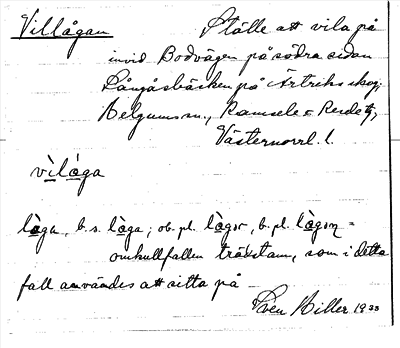 Villågan Ställe att vila på
invid Bodvägen på södra sidan
Långåsbäcken på Ärtriks skog,
Helgums sn., Ramsele o Resele tg,
Västernorrl. l.
vìlåga
låga, b. s. låga; ob. pl. lågor, b. pl. =
omkullfallen trädstam, som i detta
fall användes att sitta på
Sven Hiller 1933